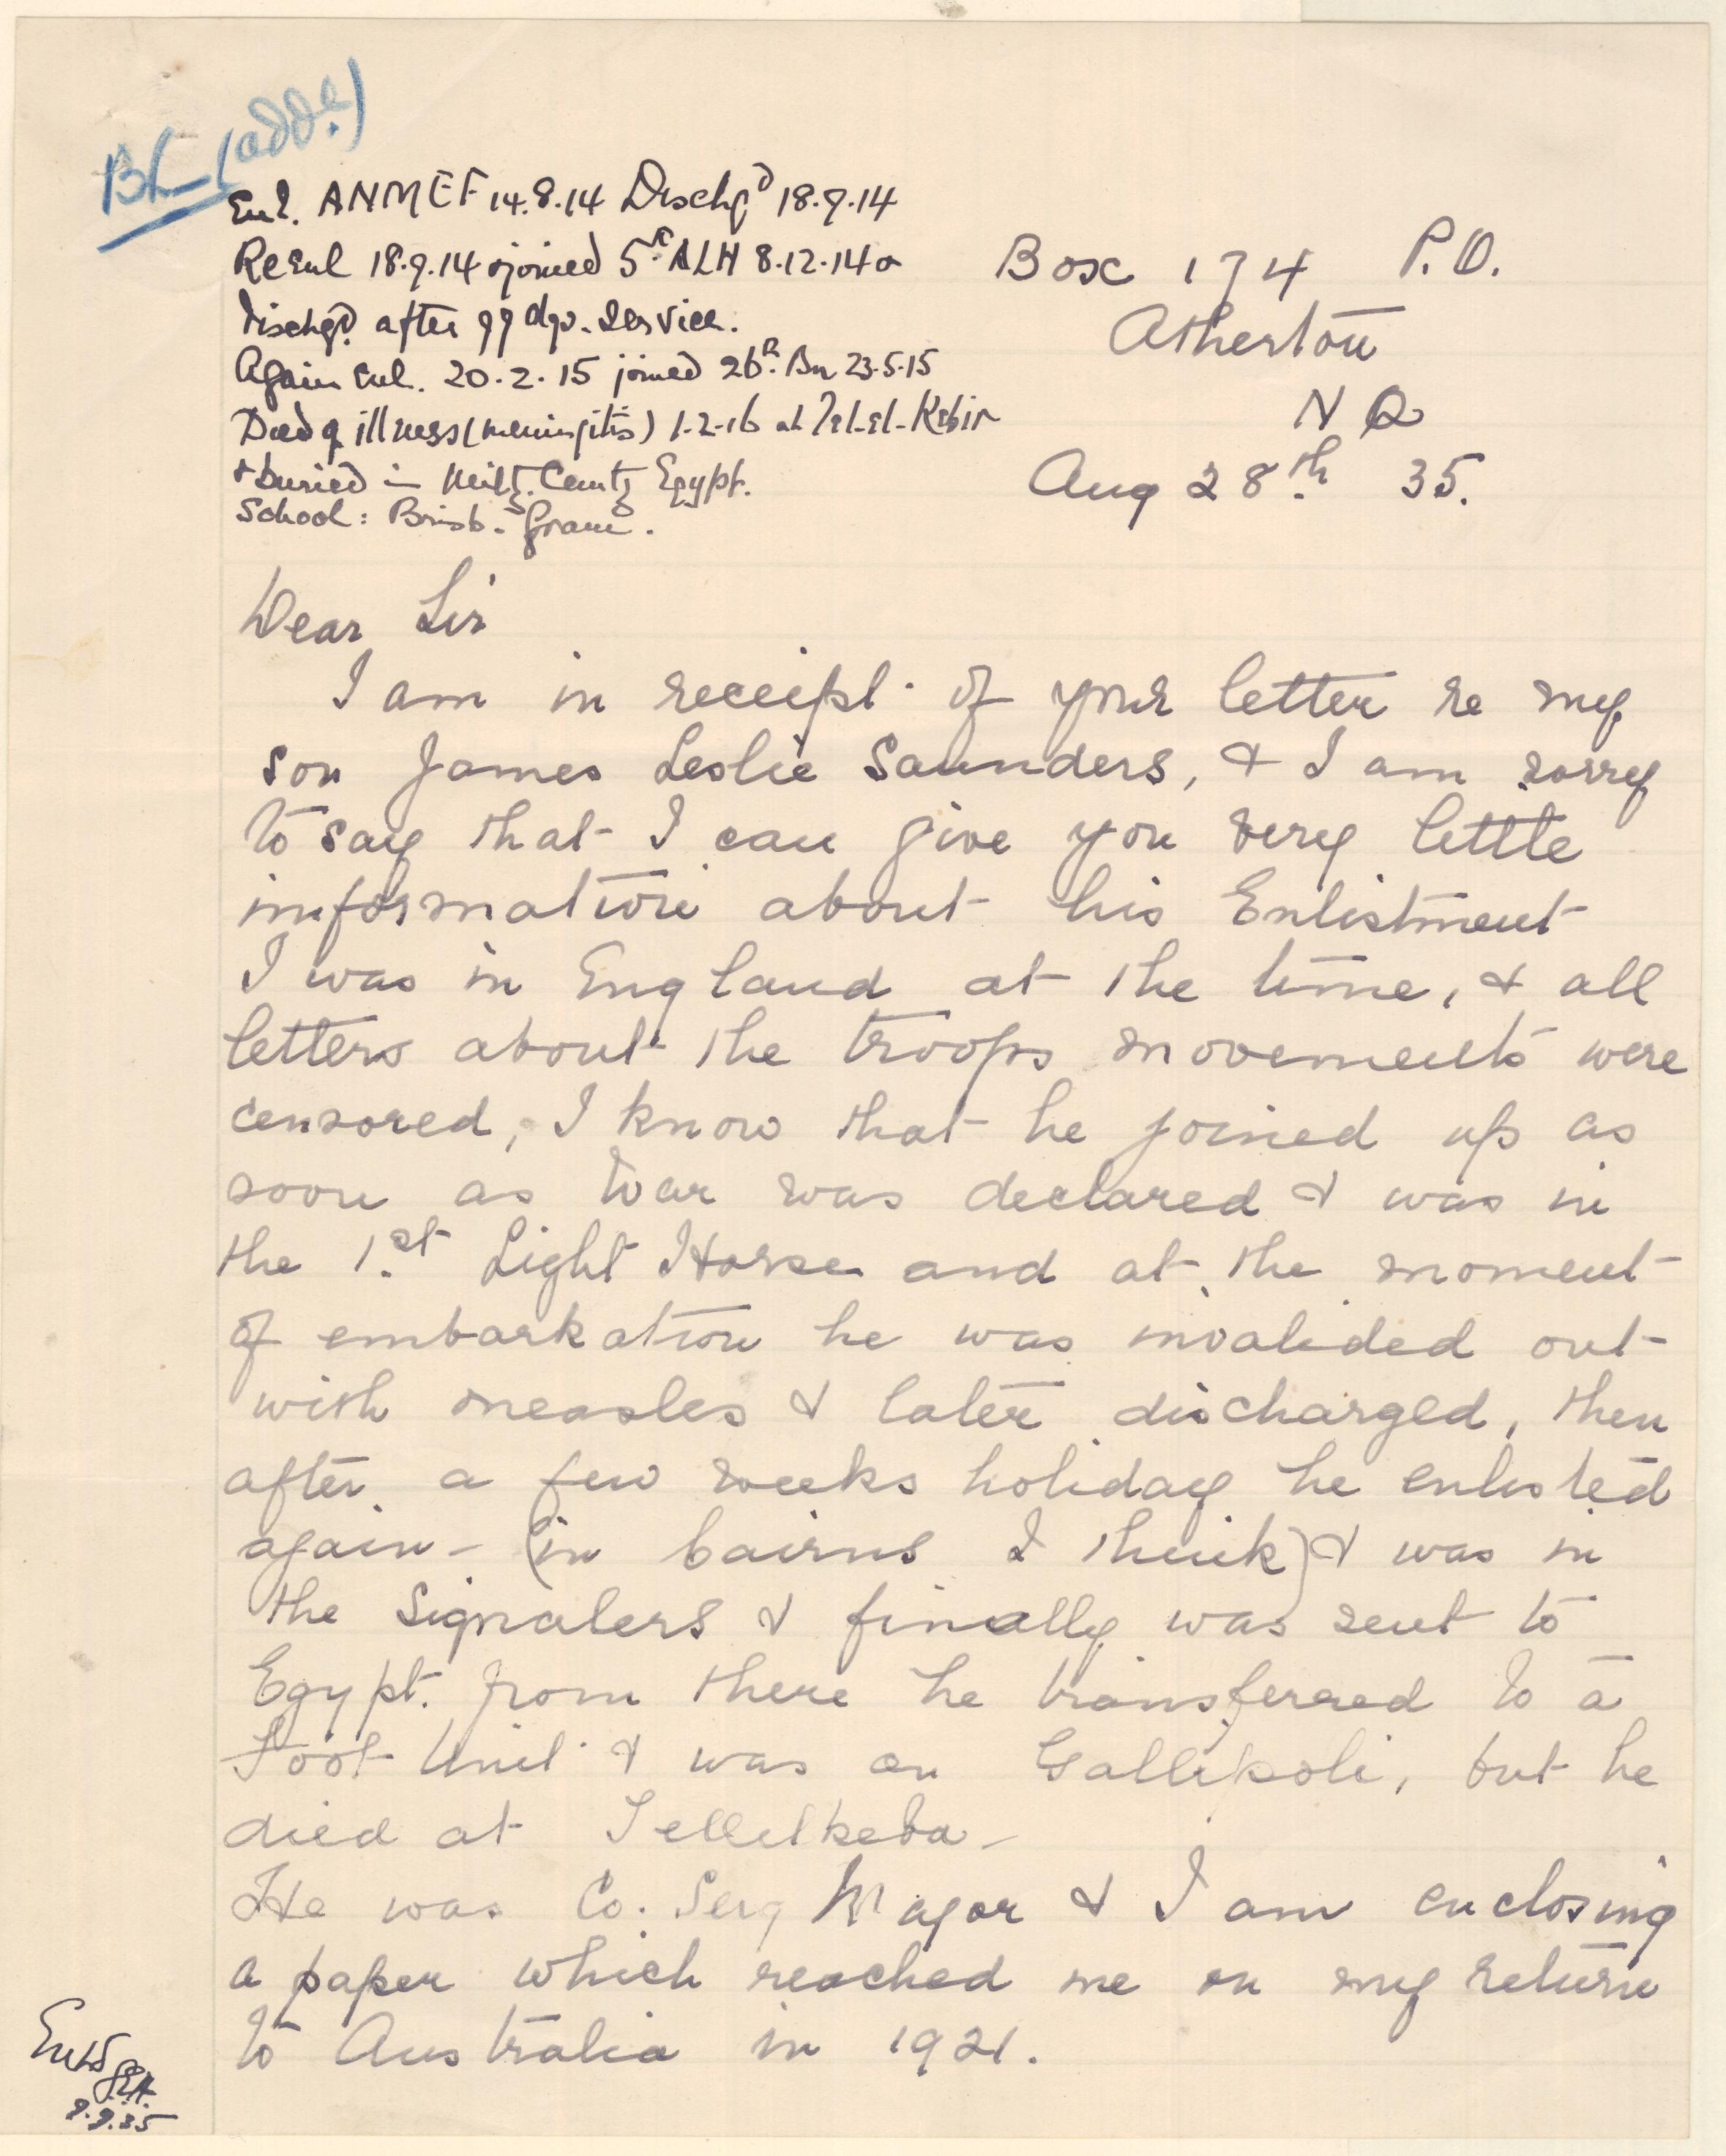 BL (add.)
Enl. ANMEF 14.8.14 Dischgd 18.9.14
Reenl 18.9.14 joined 5th ALH 8.12.14 &
dischgd. after 99 dys. service.
Again enl. 20.2.15 joined 26th. Bn 23.5.15
Died of illness (meningitis) 1.2.16 at Tel-el-Kebir
& buried in Milty. Cemty Egypt.
School: Brisb. Gram.
Box 174 P.O.
Atherton
N Q
Aug 28th 35.
Dear Sir
I am in receipt of your letter re my
son James Leslie Saunders, & I am sorry
to say that I can give you very little
information about his Enlistment
I was in England at the time, & all
letters about the troops movements were
censored, I know that he joined up as
soon as War was declared & was in
the 1st Light Horse and at the moment
of embarkation he was invalided out
with measles & later discharged, then
after a few weeks holiday he enlisted
again - (in Cairns I think) & was in
the Signalers & finally was sent to
Egypt. from there he transferred to a
Foot Unit & was on Gallipoli, but he
died at Tellelkeba -
He was Co. Serg Major & I am enclosing
a paper which reached me on my return
to Australia in 1921.
9.9.35